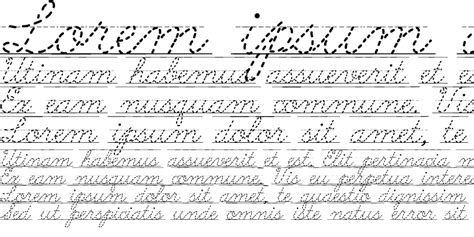 Lorem ipsum
Utinam habemus assueverit et e
Ex eam nusquam commune. Vi
Lorem ipsum dolor sit amet, te
Utinam habemus assueverit et est. Elit pertinacia m
Ex eam nusquam commune. Vis eu perpetua interes
Lorem ipsum dolor sit amet, te quaestio dignissim
Sed ut perspiciatis unde omnis iste natus error sit